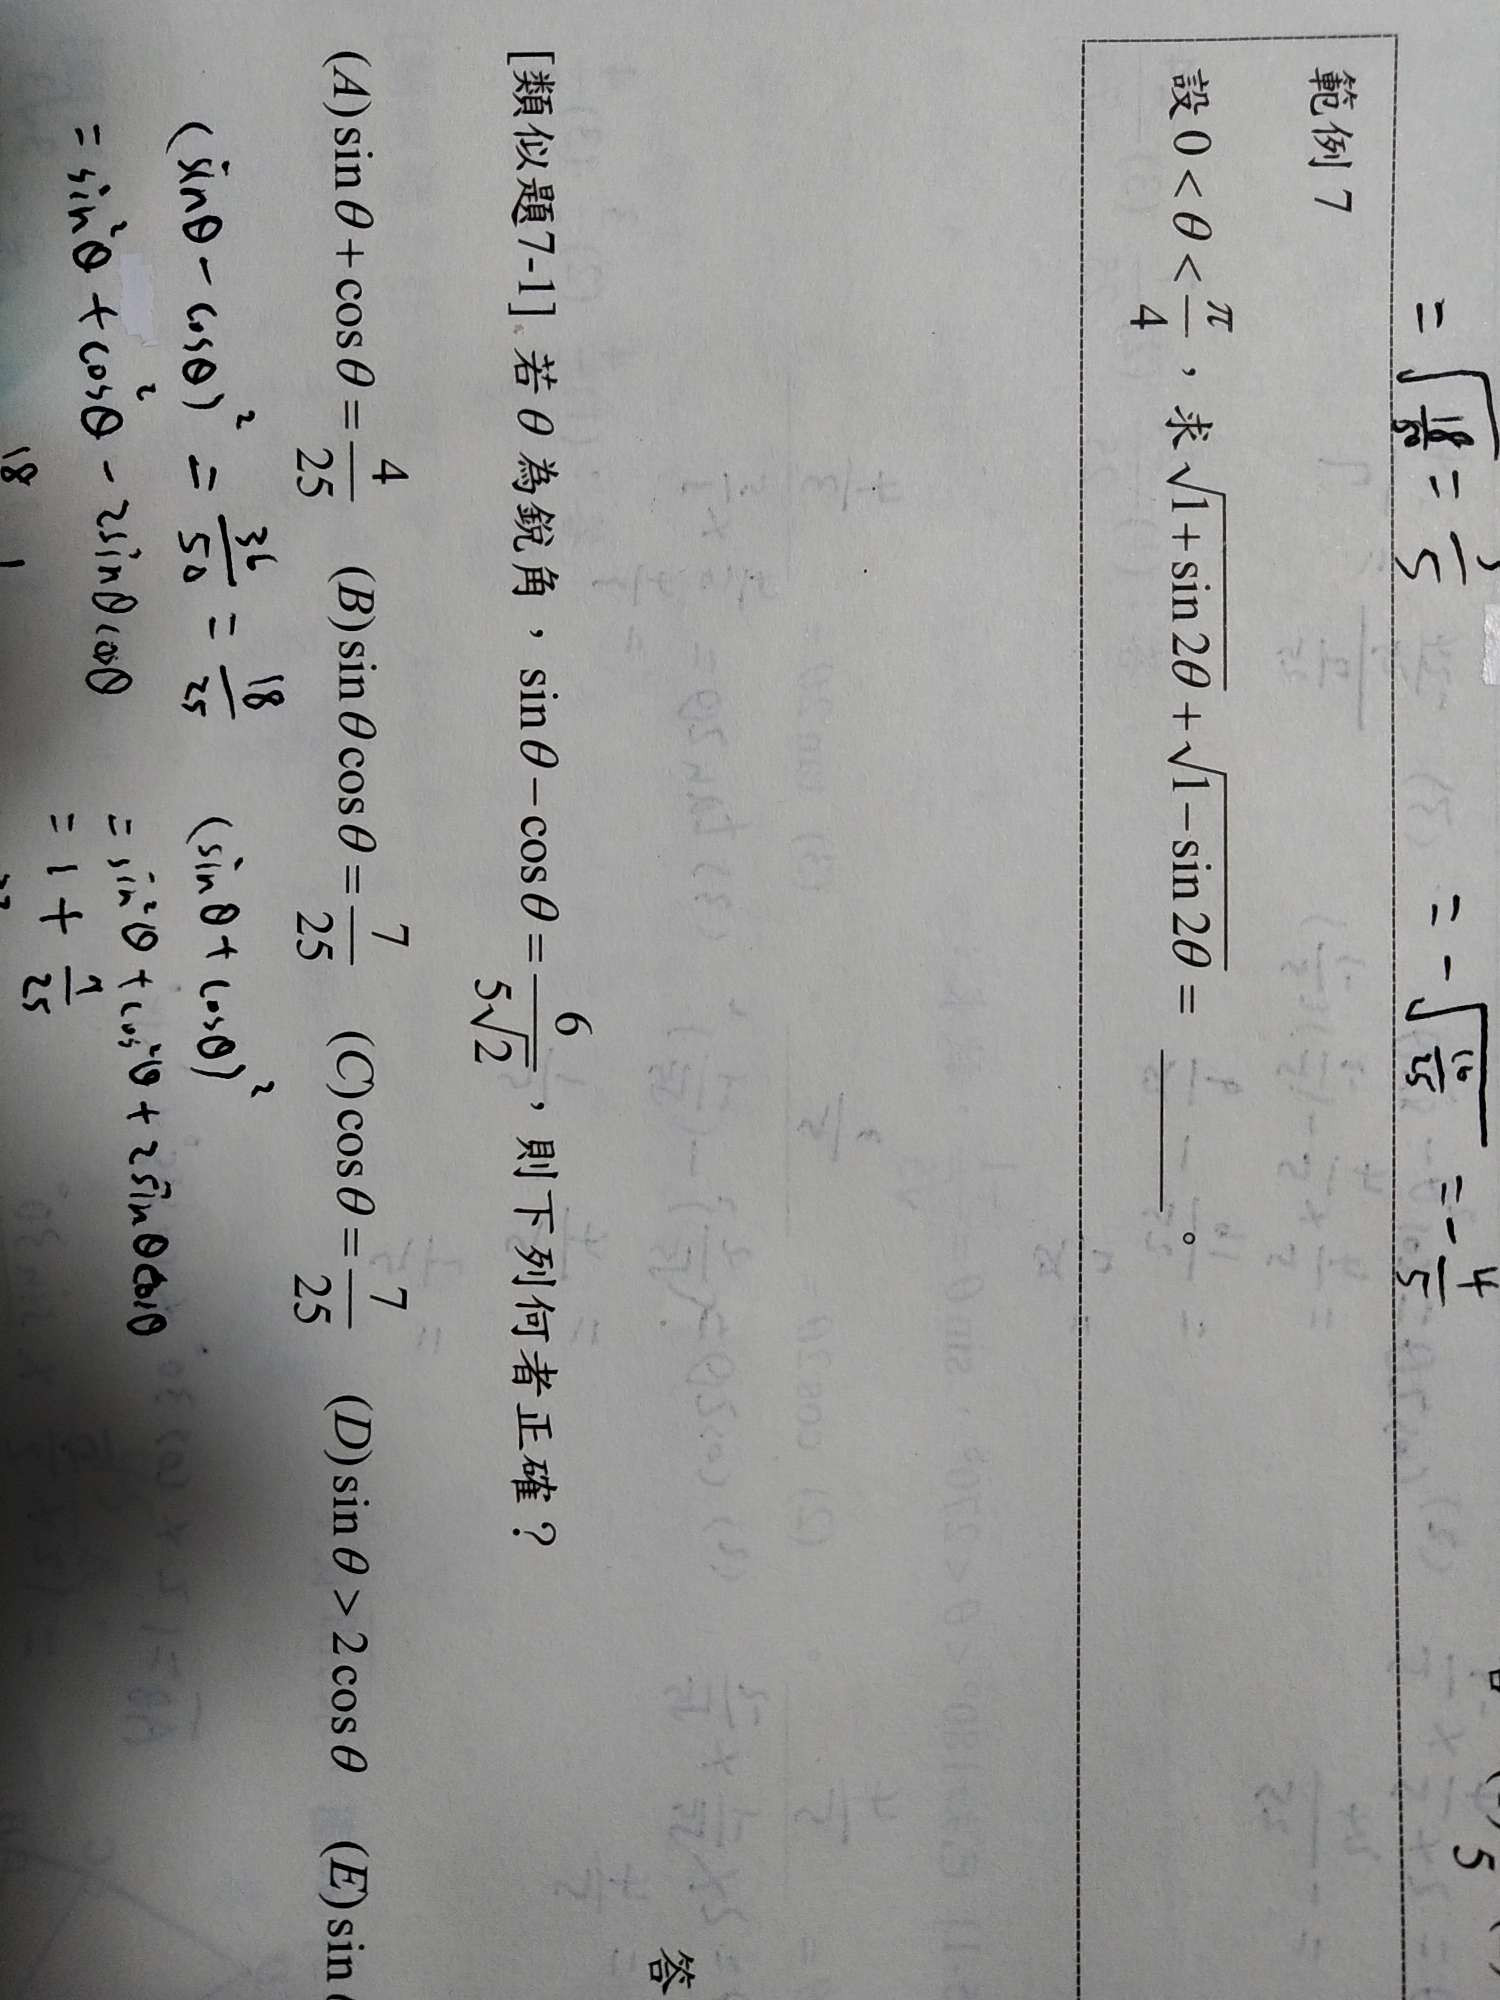 = √(18/50) = 3/5
= -√(16/25) = -4/5
範例 7
設 0 < θ < π/4 , 求 √(1+sin2θ) + √(1−sin2θ) = ______ 。
答
[類似題7-1] 若 θ 為銳角 , sinθ − cosθ = 6/(5√2) , 則下列何者正確 ?
(A) sinθ + cosθ = 4/25 (B) sinθcosθ = 7/25 (C) cosθ = 7/25 (D) sinθ > 2cosθ (E) sin
(sinθ − cosθ)² = 36/50 = 18/25
= sin²θ + cos²θ − 2sinθcosθ
18 1
(sinθ + cosθ)²
= sin²θ + cos²θ + 2sinθcosθ
= 1 + 7/25